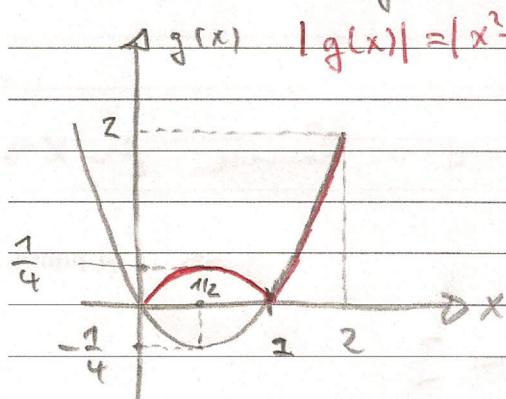 g(x) |g(x)| = |x²-
2
1/4
1/2
x
-1/4
1 2